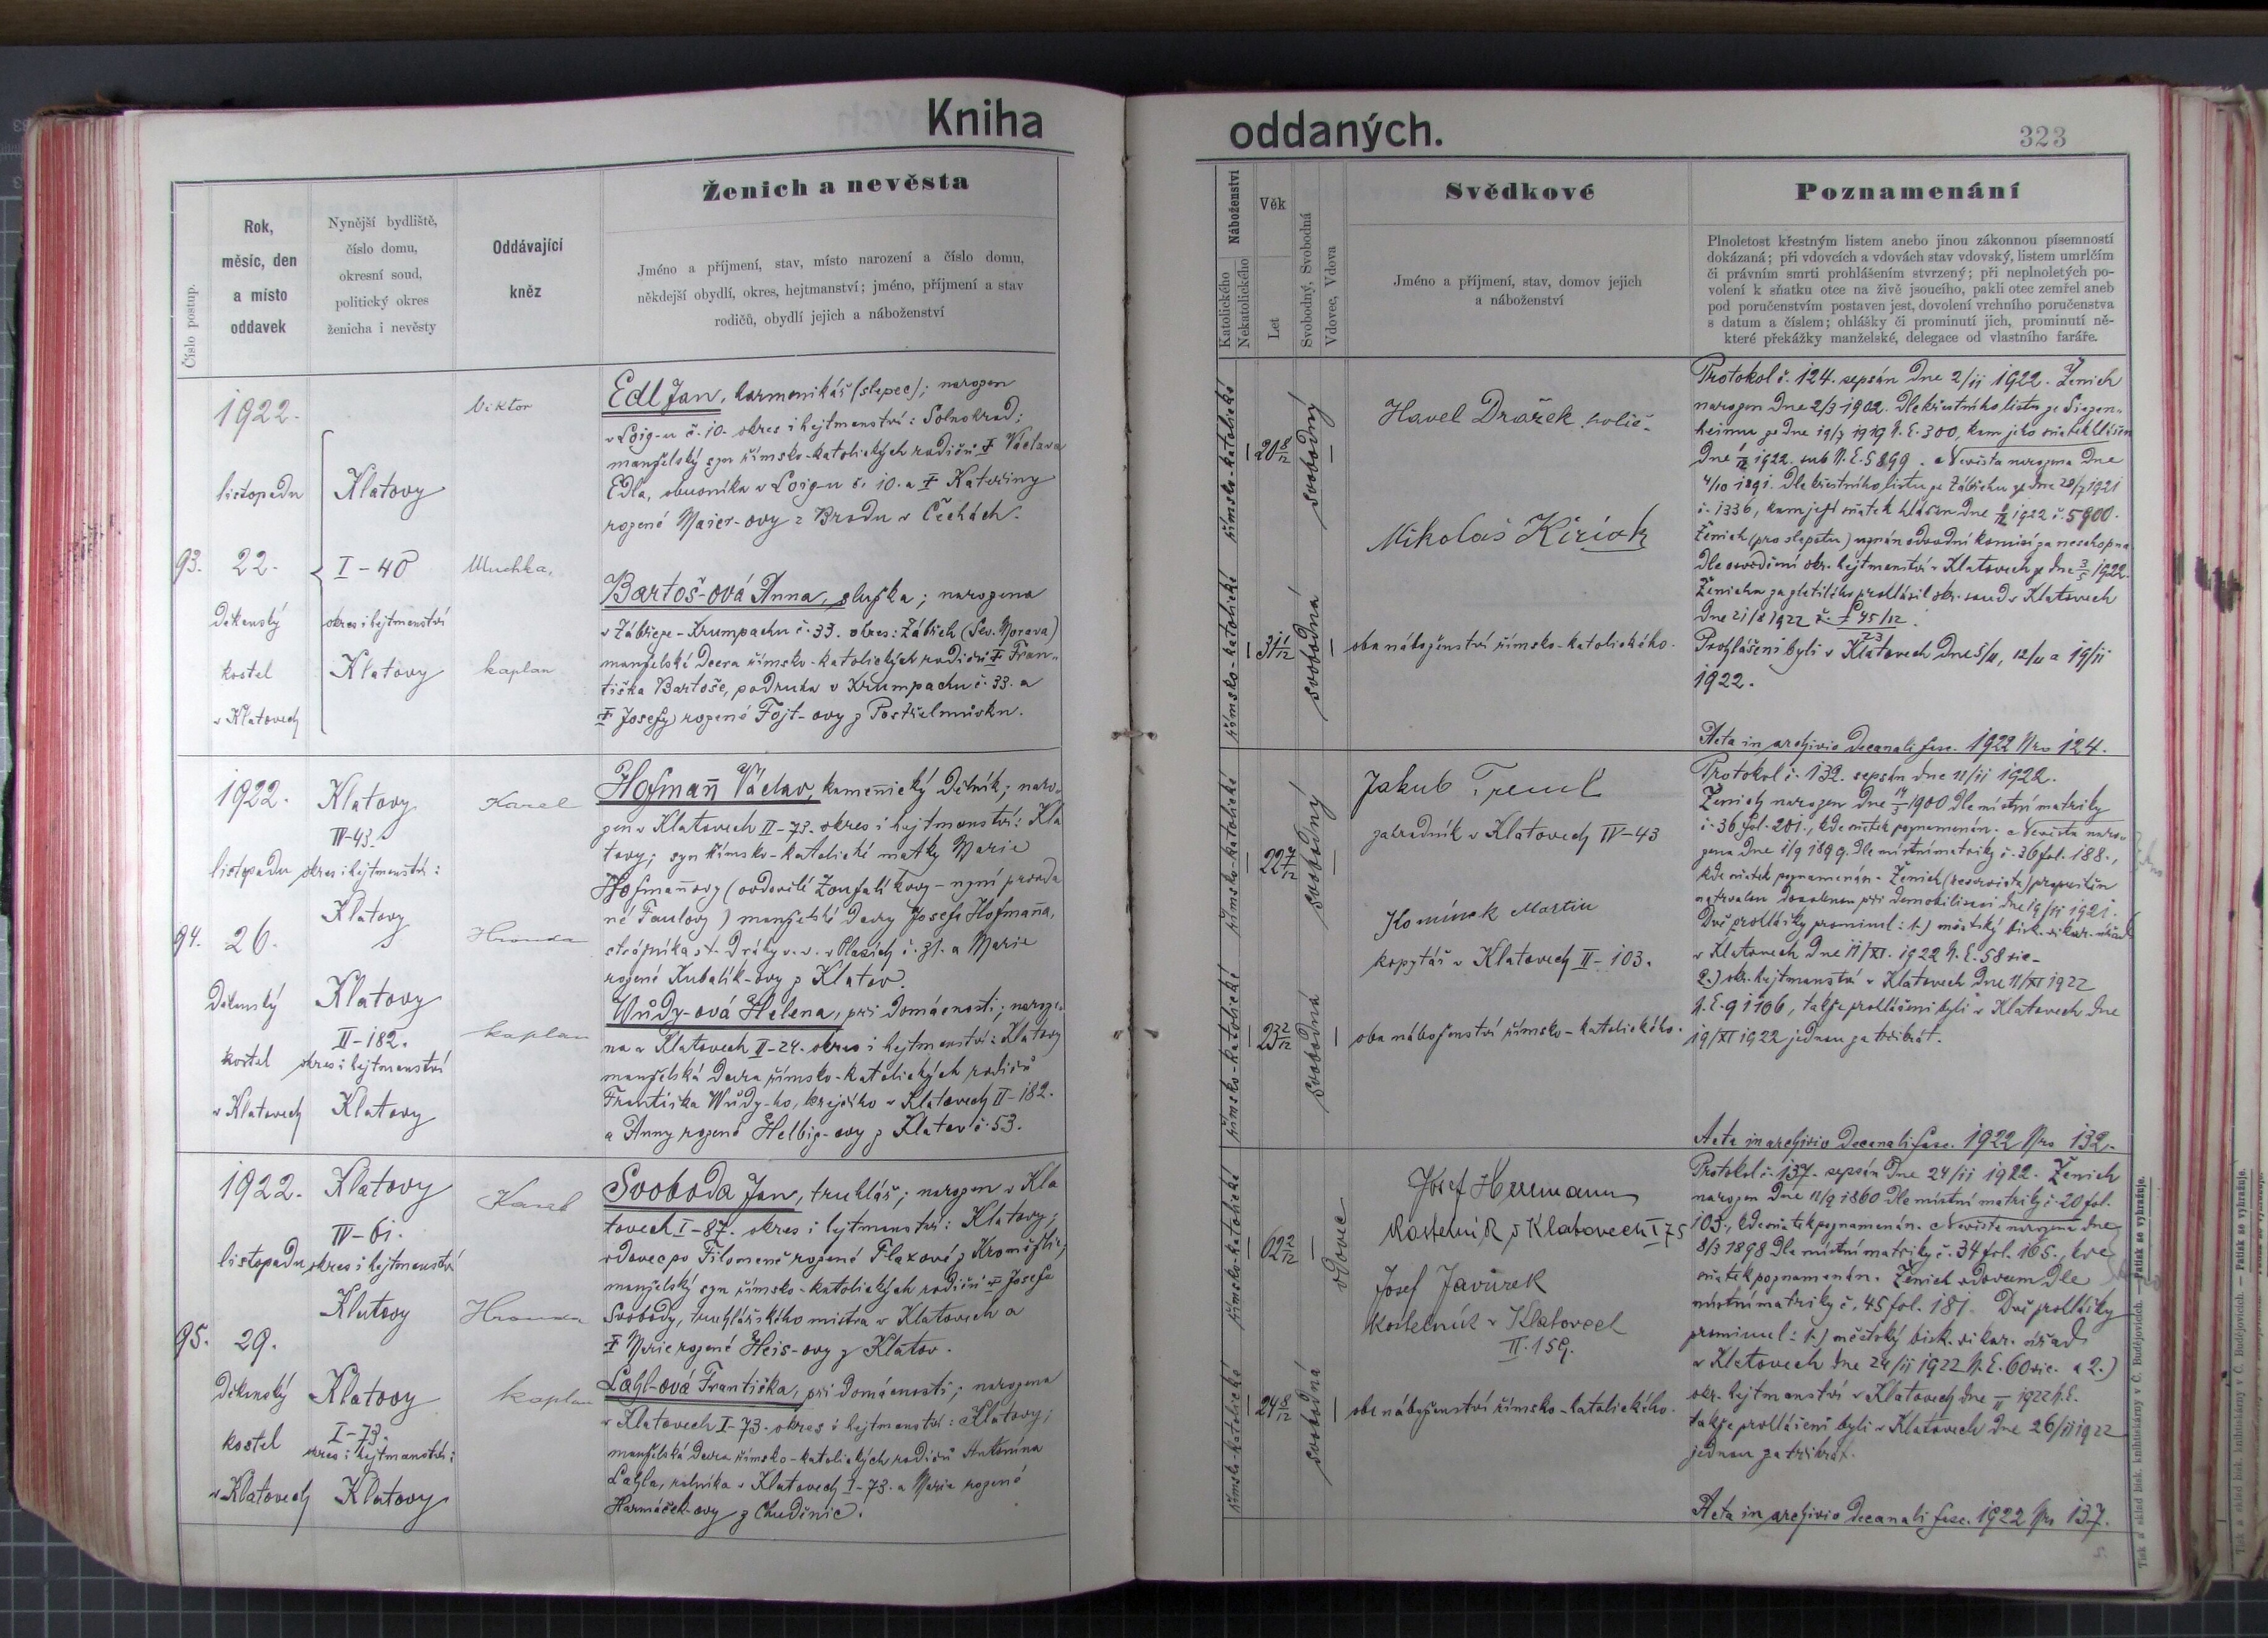 Kniha
oddaných.
323
Číslo postup.
Rok,
měsíc, den
a místo
oddavek
Nynější bydliště,
číslo domu,
okresní soud,
politický okres
ženicha i nevěsty
Oddávající
kněz
Ženich a nevěsta
Jméno a příjmení, stav, místo narození a číslo domu,
někdejší obydlí, okres, hejtmanství; jméno, příjmení a stav
rodičů, obydlí jejich a náboženství
Náboženství
Katolického
Nekatolického
Věk
Let
Svobodný, Svobodná
Vdovec, Vdova
Svědkové
Jméno a příjmení, stav, domov jejich
a náboženství
Poznamenání
Plnoletost křestným listem anebo jinou zákonnou písemností
dokázaná; při vdovcích a vdovách stav vdovský, listem umrlčím
či právním smrti prohlášením stvrzený; při neplnoletých po-
volení k sňatku otce na živě jsoucího, pakli otec zemřel aneb
pod poručenstvím postaven jest, dovolení vrchního poručenstva
s datum a číslem; ohlášky či prominutí jich, prominutí ně-
které překážky manželské, delegace od vlastního faráře.
93.
1922.
listopadu
22.
Děkanský
kostel
v Klatovech
Klatovy
I-40
okres i hejtmanství
Klatovy
Viktor
Muchka,
kaplan
Edl Jan, harmonikář (slepec); narozen
v Loig-u č. 10. okres i hejtmanství: Solnohrad;
manželský syn římsko-katolických rodičů † Václava
Edla, obuvníka v Loig-u č. 10. a † Kateřiny
rozené Maier-ovy z Brodu v Čechách.
Bartoš-ová Anna, služka; narozena
v Zábřeze-Krumpachu č. 33. okres: Zábřeh (Sev. Morava)
manželská dcera římsko-katolických rodičů † Fran-
tiška Bartoše, podruha v Krumpachu č. 33. a
† Josefy rozené Fojt-ovy z Postřelmůvku.
římsko-katolické
20 8/12
svobodný
římsko-katolické
31 1/12
svobodná
Havel Drážek
Mikoláš
oba náboženství římsko-katolického.
Protokol č. 124. sepsán dne 2/11 1922. Ženich
narozen dne 2/3 1902. Dle křestního listu ze Siezen-
heimu ze dne 19/7 1919 N. E. 300, kam jeho sňatek hlášen
dne 1/12 1922. sub N. E. 5899. Nevěsta narozena dne
4/10 1891. Dle křestního listu ze Zábřehu ze dne 28/7 1921
č. 1336, kam její sňatek hlášen dne 1/12 1922 č. 5900.
Ženich (pro slepotu) uznán odvodní komisí za neschopna
Dle osvědčení okr. hejtmanství v Klatovech ze dne 3/5 1922.
Ženicha za zletilého prohlásil okr. soud v Klatovech
dne 21/8 1922
Prohlášeni byli v Klatovech dne 5/11, 12/11 a 19/11
1922.
Acta in archivio decanali fasc. 1922 Nro 124.
94.
1922.
listopadu
26.
Děkanský
kostel
v Klatovech
Klatovy
IV-43.
okres i hejtmanství:
Klatovy
Klatovy
II-182.
okres i hejtmanství
Klatovy
Karel
Hrouda
kaplan
Hofman̄ Václav, kamen̄ický dělník; naro-
zen v Klatovech II-73. okres i hejtmanství: Kla
tovy; syn římsko-katolické matky Marie
Hofman̄ovy (ovdovělé Zoufalíkovy - nyní provda
né Faulovy) manželské dcery Josefa Hofman̄a,
strážníka st. dráhy v. v. v Plasích č. 31. a Marie
rozené Kubalík-ovy z Klatov.
Wůdy-ová Helena, při domácnosti; naroze-
na v Klatovech II-24. okres i hejtmanství: Klatovy
manželská dcera římsko-katolických rodičů
Františka Wůdy-ho, krejčího v Klatovech II-182.
a Anny rozené Helbig-ovy z Klatov č. 53.
římsko-katolické
22 7/12
svobodný
římsko-katolické
23 2/12
svobodná
Jakub Treml
zahradník v Klatovech IV-43
Komínek Martin
kopytář v Klatovech II-103.
oba náboženství římsko-katolického.
Protokol č. 132. sepsán dne 11/11 1922.
Ženich narozen dne 14/3 1900 dle místní matriky
č. 36 fol. 201., kde sňatek poznamenán. Nevěsta naro-
zena dne 1/9 1899. Dle místní matriky č. 36 fol. 188.,
kde sňatek poznamenán. Ženich (reservista) propuštěn
na trvalou dovolenou při demobilisaci dne 19/11 1921.
Dvě prohlášky prominul: 1.) městský bisk. vikar. úřad
v Klatovech dne 11/XI. 1922 N. E. 58 vic-
2.) okr. hejtmanství v Klatovech dne 11/XI 1922
N. E. 91106, takže prohlášeni byli v Klatovech dne
19/XI 1922 jednou za třikrát.
Acta in archivio decanali fasc. 1922 Nro 132.
95.
1922.
listopadu
29.
Děkanský
kostel
v Klatovech
Klatovy
IV-61.
okres i hejtmanství
Klatovy
Klatovy
I-73.
okres i hejtmanství:
Klatovy
Karel
Hrouda
kaplan
Svoboda Jan, truhlář; narozen v Kla
tovech I-87. okres i hejtmanství: Klatovy;
vdovec po Filomeně rozené Flaxové z Kroměříže;
manželský syn římsko-katolických rodičů † Josefa
Svobody, truhlářského mistra v Klatovech a
† Marie rozené Heis-ovy z Klatov.
Lahl-ová Františka, při domácnosti; narozena
v Klatovech I-73. okres i hejtmanství: Klatovy;
manželská dcera římsko-katolických rodičů Antonína
Lahla, rolníka v Klatovech I-73. a Marie rozené
Harmáček-ovy z Chuděnic.
římsko-katolické
62 2/12
vdovec
římsko-katolické
24 8/12
svobodná
Josef Herrmann
Kostelník v Klatovech I 75
Josef Javůrek
kostelník v Klatovech
II. 159.
oba náboženství římsko-katolického.
Protokol č. 137. sepsán dne 24/11 1922. Ženich
narozen dne 11/9 1860 dle místní matriky č. 20 fol.
103., kde sňatek poznamenán. Nevěsta narozena dne
8/3 1898 dle místní matriky č. 34 fol. 165., kde
sňatek poznamenán. Ženich vdovcem dle
místní matriky č. 45 fol. 181. Dvě prohlášky
prominul: 1.) městský bisk. vikar. úřad
v Klatovech dne 24/11 1922 N. E. 60 vic. a 2.)
okr. hejtmanství v Klatovech dne 1922 N. E.
takže prohlášeni byli v Klatovech dne 26/11 1922
jednou za třikrát.
Acta in archivio decanali fasc. 1922 Nro 137.
Tisk a sklad bisk. knihtiskárny v Č. Budějovicích. — Patisk se vyhražuje.